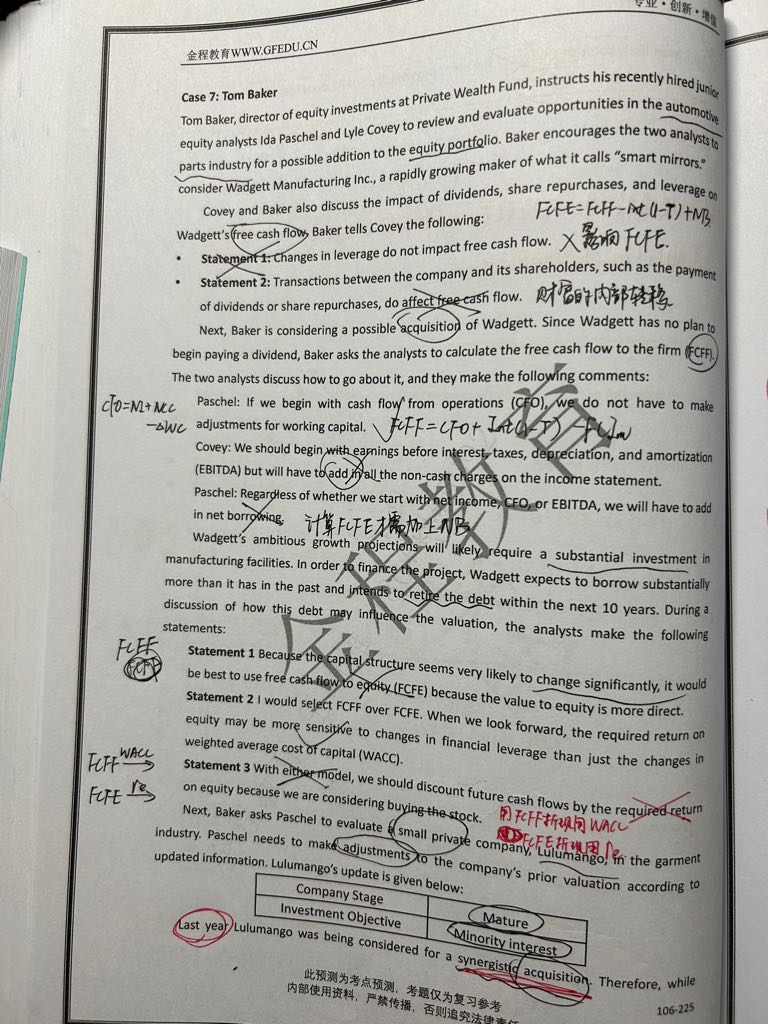 专业·创新·增值
金程教育WWW.GFEDU.CN
Case 7: Tom Baker
Tom Baker, director of equity investments at Private Wealth Fund, instructs his recently hired junior
equity analysts Ida Paschel and Lyle Covey to review and evaluate opportunities in the automotive
parts industry for a possible addition to the equity portfolio. Baker encourages the two analysts to
consider Wadgett Manufacturing Inc., a rapidly growing maker of what it calls “smart mirrors.”
Covey and Baker also discuss the impact of dividends, share repurchases, and leverage on
FCFE=FCFF-Int(1-T)+NB
Wadgett’s free cash flow, Baker tells Covey the following:
• Statement 1: Changes in leverage do not impact free cash flow. X影响FCFE.
• Statement 2: Transactions between the company and its shareholders, such as the payment
of dividends or share repurchases, do affect free cash flow. 财富的内部转移
Next, Baker is considering a possible acquisition of Wadgett. Since Wadgett has no plan to
begin paying a dividend, Baker asks the analysts to calculate the free cash flow to the firm (FCFF).
The two analysts discuss how to go about it, and they make the following comments:
CFO=NI+NCC
-ΔWC
Paschel: If we begin with cash flow from operations (CFO), we do not have to make
adjustments for working capital. FCFF=CFO+Int(1-T)-FCInv
Covey: We should begin with earnings before interest, taxes, depreciation, and amortization
(EBITDA) but will have to add in all the non-cash charges on the income statement.
Paschel: Regardless of whether we start with net income, CFO, or EBITDA, we will have to add
in net borrowing. 计算FCFE才需加上NB
Wadgett’s ambitious growth projections will likely require a substantial investment in
manufacturing facilities. In order to finance the project, Wadgett expects to borrow substantially
more than it has in the past and intends to retire the debt within the next 10 years. During a
discussion of how this debt may influence the valuation, the analysts make the following
statements:
FCFF
Statement 1 Because the capital structure seems very likely to change significantly, it would
be best to use free cash flow to equity (FCFE) because the value to equity is more direct.
Statement 2 I would select FCFF over FCFE. When we look forward, the required return on
equity may be more sensitive to changes in financial leverage than just the changes in
weighted average cost of capital (WACC).
FCFF WACC→
FCFE re→
Statement 3 With either model, we should discount future cash flows by the required return
on equity because we are considering buying the stock. 用FCFF折现用WACC
FCFE折现用re
Next, Baker asks Paschel to evaluate a small private company, Lulumango, in the garment
industry. Paschel needs to make adjustments to the company’s prior valuation according to
updated information. Lulumango’s update is given below:
Company Stage Mature
Investment Objective Minority interest
Last year Lulumango was being considered for a synergistic acquisition. Therefore, while
此预测为考点预测，考题仅为复习参考
内部使用资料，严禁传播，否则追究法律责任
106-225
金程教育